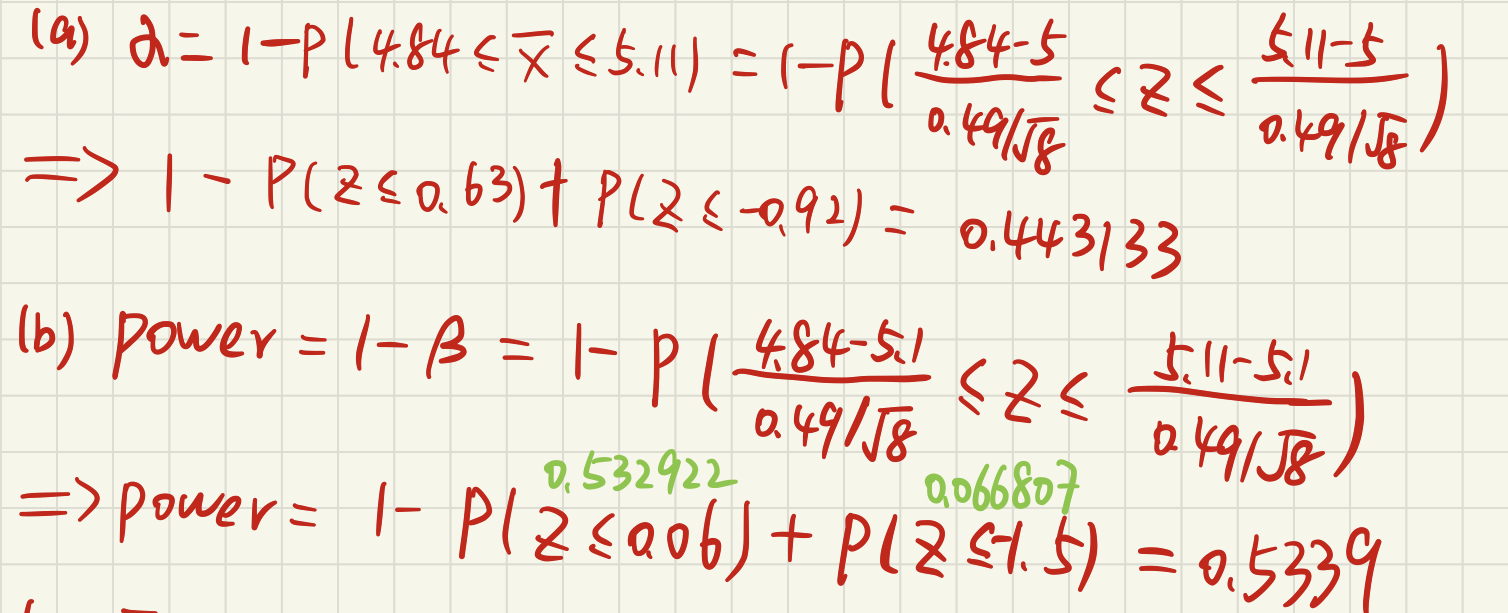 (a) α = 1-P(4.84 ≤ x̄ ≤ 5.11) = 1-P( (4.84-5)/(0.49/√8) ≤ Z ≤ (5.11-5)/(0.49/√8) )
⟹ 1 - P(Z ≤ 0.63) + P(Z ≤ -0.92) = 0.443133
(b) Power = 1-β = 1-P( (4.84-5.1)/(0.49/√8) ≤ Z ≤ (5.11-5.1)/(0.49/√8) )
0.532922 0.066807
⟹ Power = 1- P(Z ≤ 0.06) + P(Z ≤ -1.5) = 0.5339